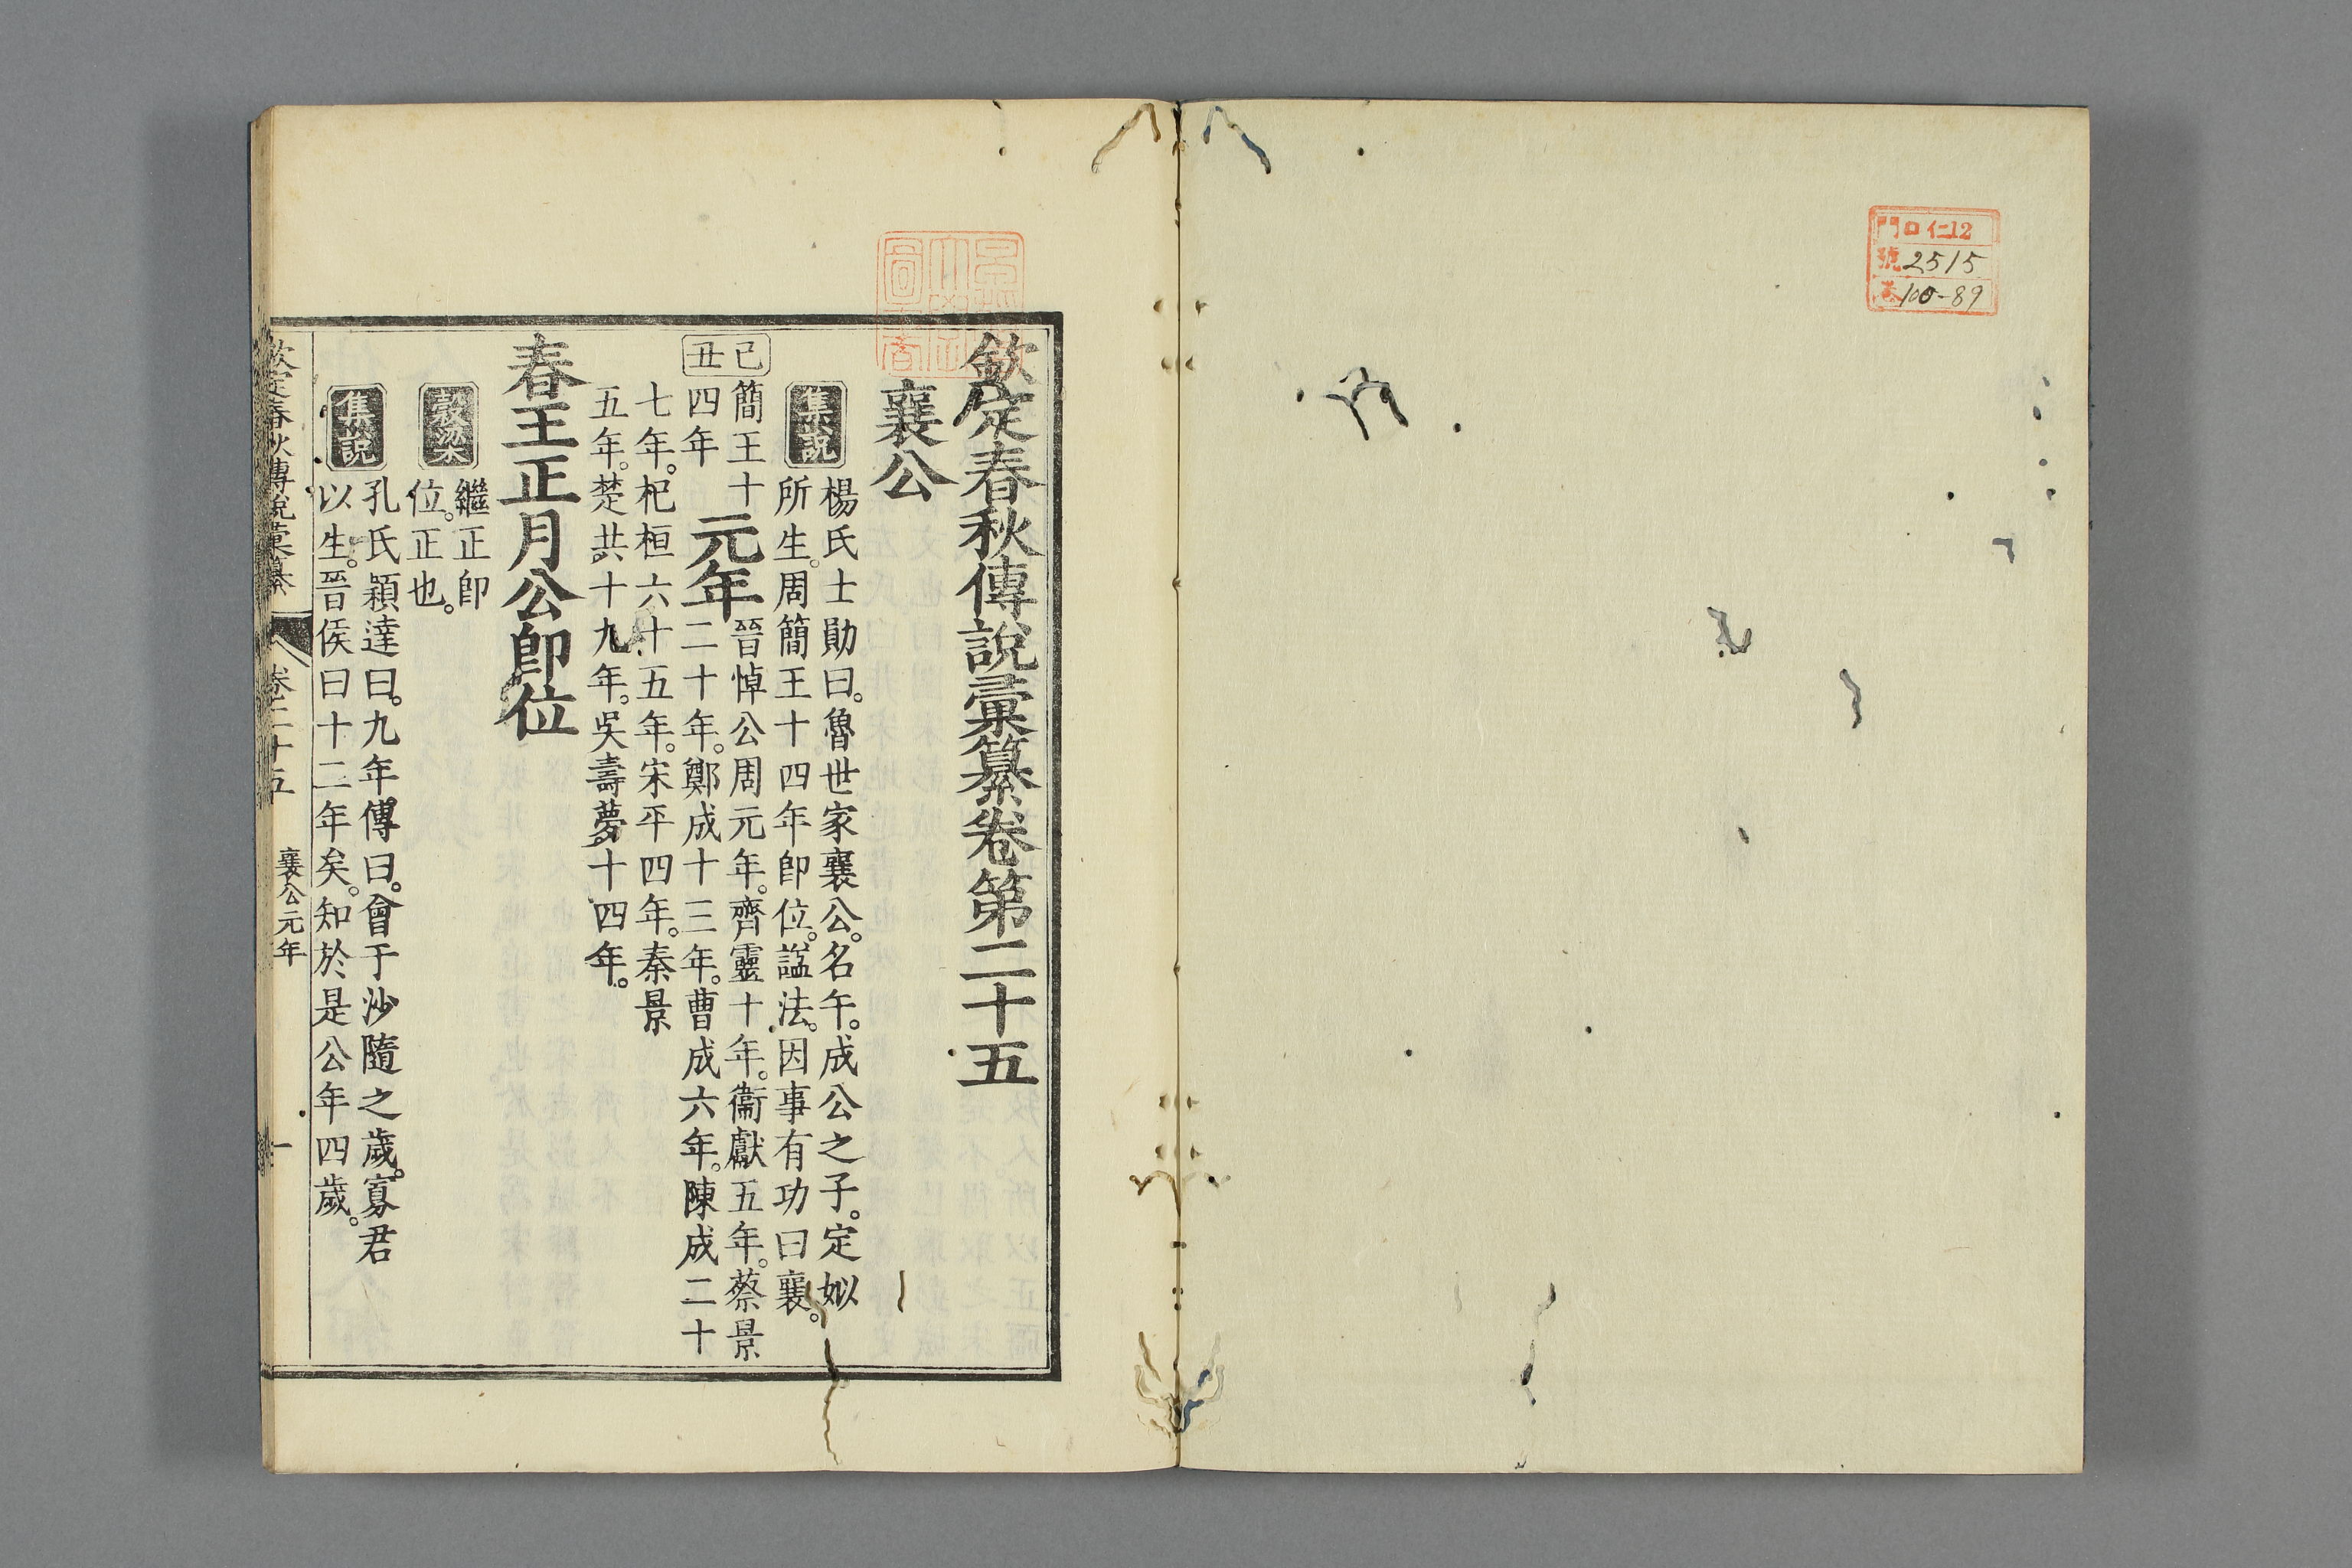 門 口仁12
號 2515
卷 100-89
欽定春秋傳說彙纂卷第二十五
襄公
集說
楊氏士勛曰。魯世家襄公。名午。成公之子。定姒
所生。周簡王十四年即位。諡法。因事有功曰襄。
己丑
簡王十四年
元年
晉悼公周元年。齊靈十年。衞獻五年。蔡景
二十年。鄭成十三年。曹成六年。陳成二十
七年。杞桓六十五年。宋平四年。秦景
五年。楚共十九年。吳壽夢十四年。
春王正月公卽位
穀梁
繼正卽
位。正也。
集說
孔氏穎達曰。九年傳曰。會于沙隨之歲。寡君
以生。晉侯曰十二年矣。知於是公年四歲。
欽定春秋傳說彙纂 卷二十五 襄公元年 一